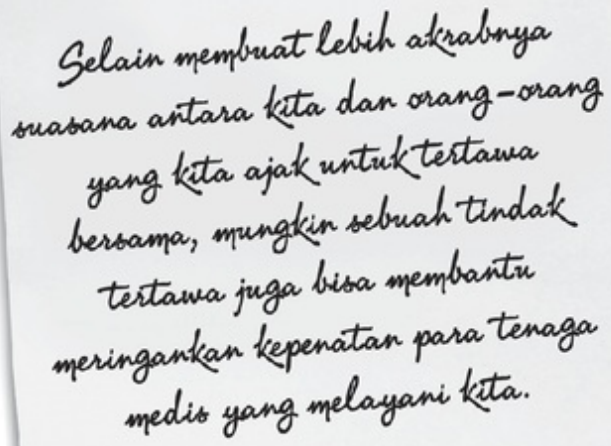 Selain membuat lebih akrabnya
suasana antara kita dan orang-orang
yang kita ajak untuk tertawa
bersama, mungkin sebuah tindak
tertawa juga bisa membantu
meringankan kepenatan para tenaga
medis yang melayani kita.